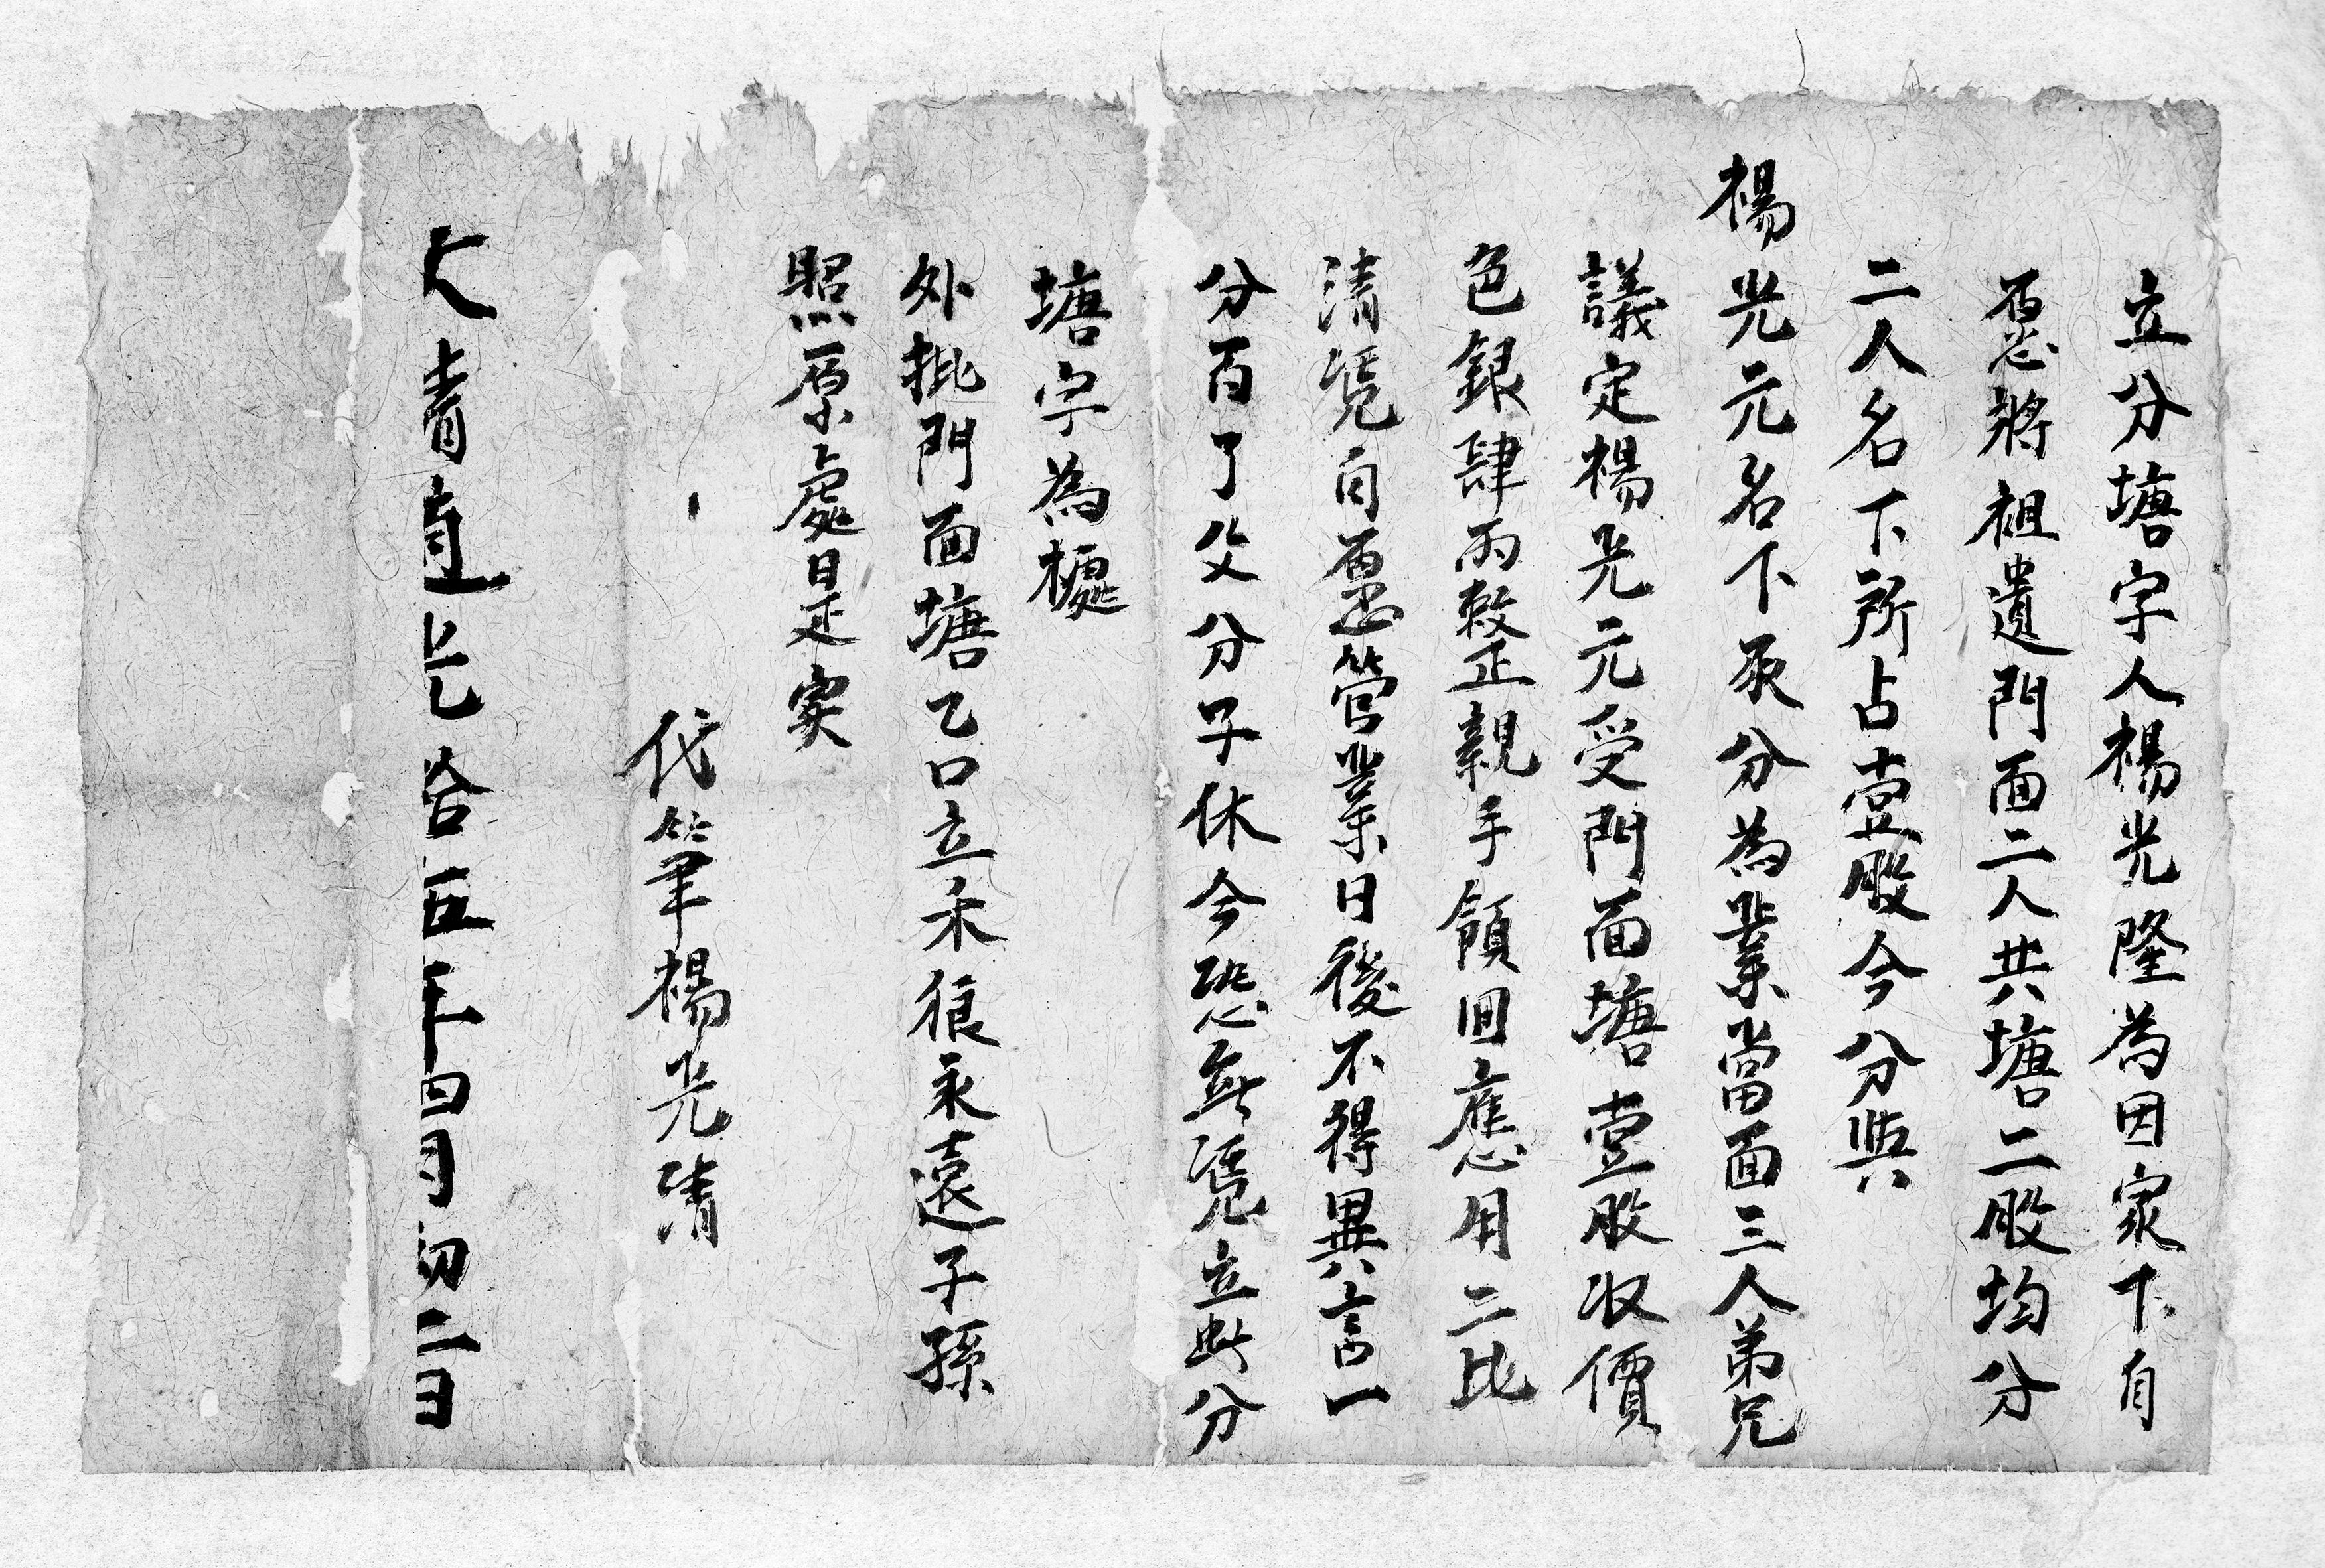 立分塘字人楊光隆為因家下自
愿將祖遺門面二人共塘二股均分
二人名下所占壹股今分與
楊光元名下承分為業當面三人弟兄
議定楊光元受門面塘壹股收價
色銀肆兩整正親手領回應用二比
清凴自愿管業日後不得異言一
分百了父分子休今恐無凴立此分
塘字為據
外批門面塘乙口立禾很永遠子孫
照原處是实
代筆楊光清
大清道光拾五年四月初二日